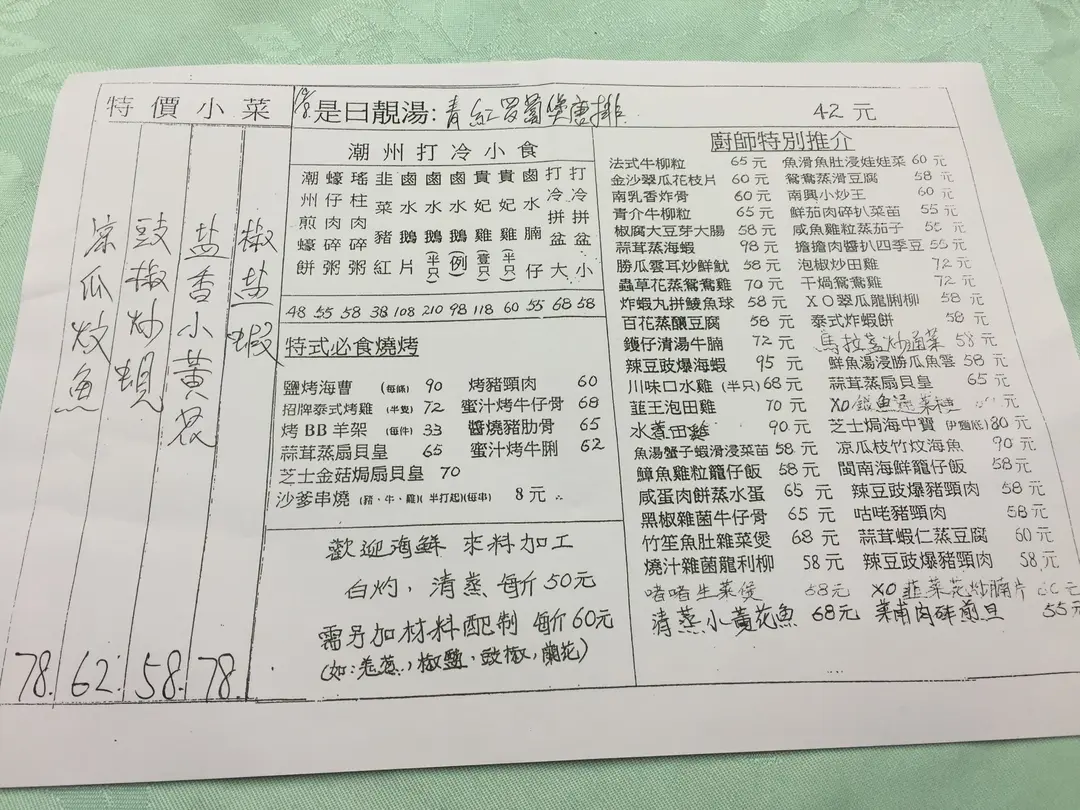 特價小菜
椒盐蝦
盐香小黃花
豉椒炒蜆
凉瓜炆魚
78. 62. 58. 78.
是日靚湯: 青紅罗蔔煲唐排 42元
潮州打冷小食
潮州煎蠔餅 48
蠔仔肉碎粥 55
瑤柱肉碎粥 58
韭菜豬紅 38
鹵水鵝片 108
鹵水鵝(半只) 210
鹵水鵝(例) 98
貴妃雞(壹只) 118
貴妃雞(半只) 60
鹵水腩仔 55
打冷拼盆大 68
打冷拼盆小 58
特式必食燒烤
鹽烤海曹 (每條) 90 烤豬頸肉 60
招牌泰式烤雞 (半隻) 72 蜜汁烤牛仔骨 68
烤BB羊架 (每件) 33 醬燒豬肋骨 65
蒜茸蒸扇貝皇 65 蜜汁烤牛脷 62
芝士金菇焗扇貝皇 70
沙爹串燒 (豬、牛、雞)(半打起)(每串) 8元
歡迎海鮮 來料加工
白灼，清蒸 每斤50元
需另加材料配制 每斤60元
(如:羗葱，椒鹽，豉椒，蘭花)
廚師特別推介
法式牛柳粒 65元 魚滑魚肚浸娃娃菜 60元
金沙翠瓜花枝片 60元 鴛鴦蒸滑豆腐 58元
南乳香炸骨 60元 南興小炒王 60元
青介牛柳粒 65元 鮮茄肉碎扒菜苗 55元
椒腐大豆芽大腸 58元 咸魚雞粒蒸茄子 55元
蒜茸蒸海蝦 98元 擔擔肉醬扒四季豆 55元
勝瓜雲耳炒鮮魷 58元 泡椒炒田雞 72元
蟲草花蒸鴛鴦雞 70元 干煱鴛鴦雞 72元
炸蝦丸拼鯪魚球 58元 XO翠瓜龍脷柳 58元
百花蒸釀豆腐 58元 泰式炸蝦餅 58元
鑊仔清湯牛腩 72元 馬拉盞炒通菜 58元
辣豆豉爆海蝦 95元 鮮魚湯浸勝瓜魚雲 58元
川味口水雞 (半只) 68元 蒜茸蒸扇貝皇 65元
韮王泡田雞 70元 XO
水煮田雞 90元 芝士焗海中寶 (伊麵底) 80元
魚湯蟹子蝦滑浸菜苗 58元 凉瓜枝竹炆海魚 90元
鱆魚雞粒籠仔飯 58元 閩南海鮮籠仔飯 58元
咸蛋肉餅蒸水蛋 65元 辣豆豉爆豬頸肉 58元
黑椒雜菌牛仔骨 65元 咕咾豬頸肉 58元
竹笙魚肚雜菜煲 68元 蒜茸蝦仁蒸豆腐 60元
燒汁雜菌龍利柳 58元 辣豆豉爆豬頸肉 58元
啫啫生菜煲 58元 XO韮菜花炒腩片
清蒸小黃花魚 68元 菜甫肉碎煎旦 55元